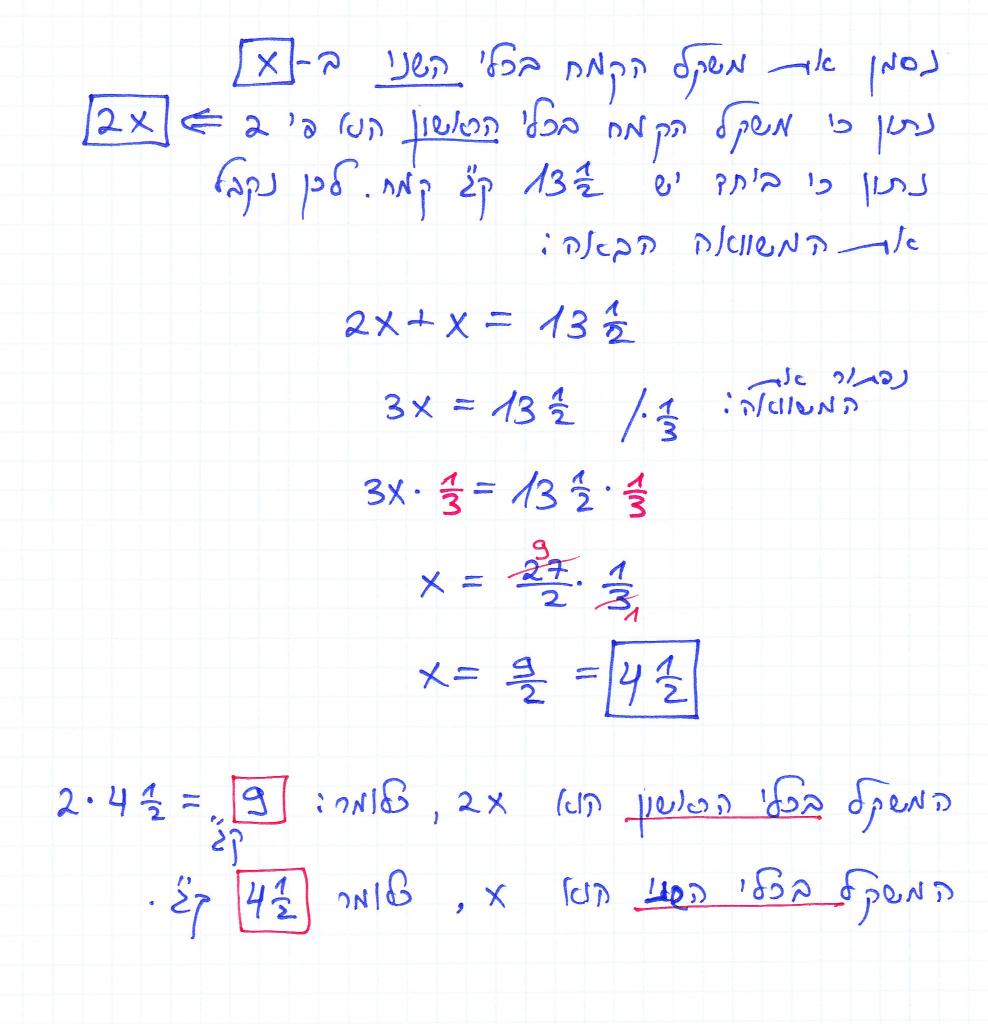 נסמן את משקל הקמח בכלי השני ב-x
נתון כי משקל הקמח בכלי הראשון הוא פי 2 ⇐ 2x
נתון כי ביחד יש 13 1/2 ק"ג קמח. לכן נקבל
את המשוואה הבאה:
2x + x = 13 1/2
נפתור את
המשוואה:
3x = 13 1/2 / · 1/3
3x · 1/3 = 13 1/2 · 1/3
9
x = 27/2 · 1/3
1
x = 9/2 = 4 1/2
המשקל בכלי הראשון הוא 2x, כלומר: 2 · 4 1/2 = 9
ק"ג
המשקל בכלי השני הוא x, כלומר 4 1/2 ק"ג.